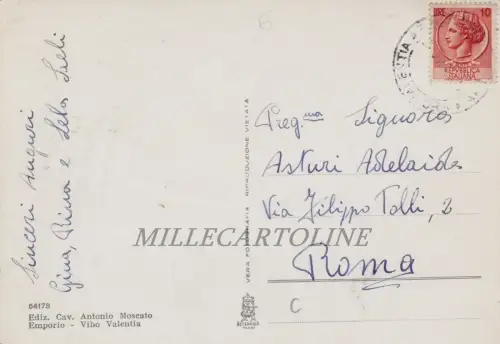 LIRE 10
REPUBBLICA
ITALIANA
Sinceri Auguri
Gina, Rina e Lela
Preg.ma Signora
Asturi Adelaide
Via Filippo Tolli, 2
Roma
MILLECARTOLINE
VERA FOTOGRAFIA RIPRODUZIONE VIETATA
54173
Ediz. Cav. Antonio Moscato
Emporio - Vibo Valentia
6
C